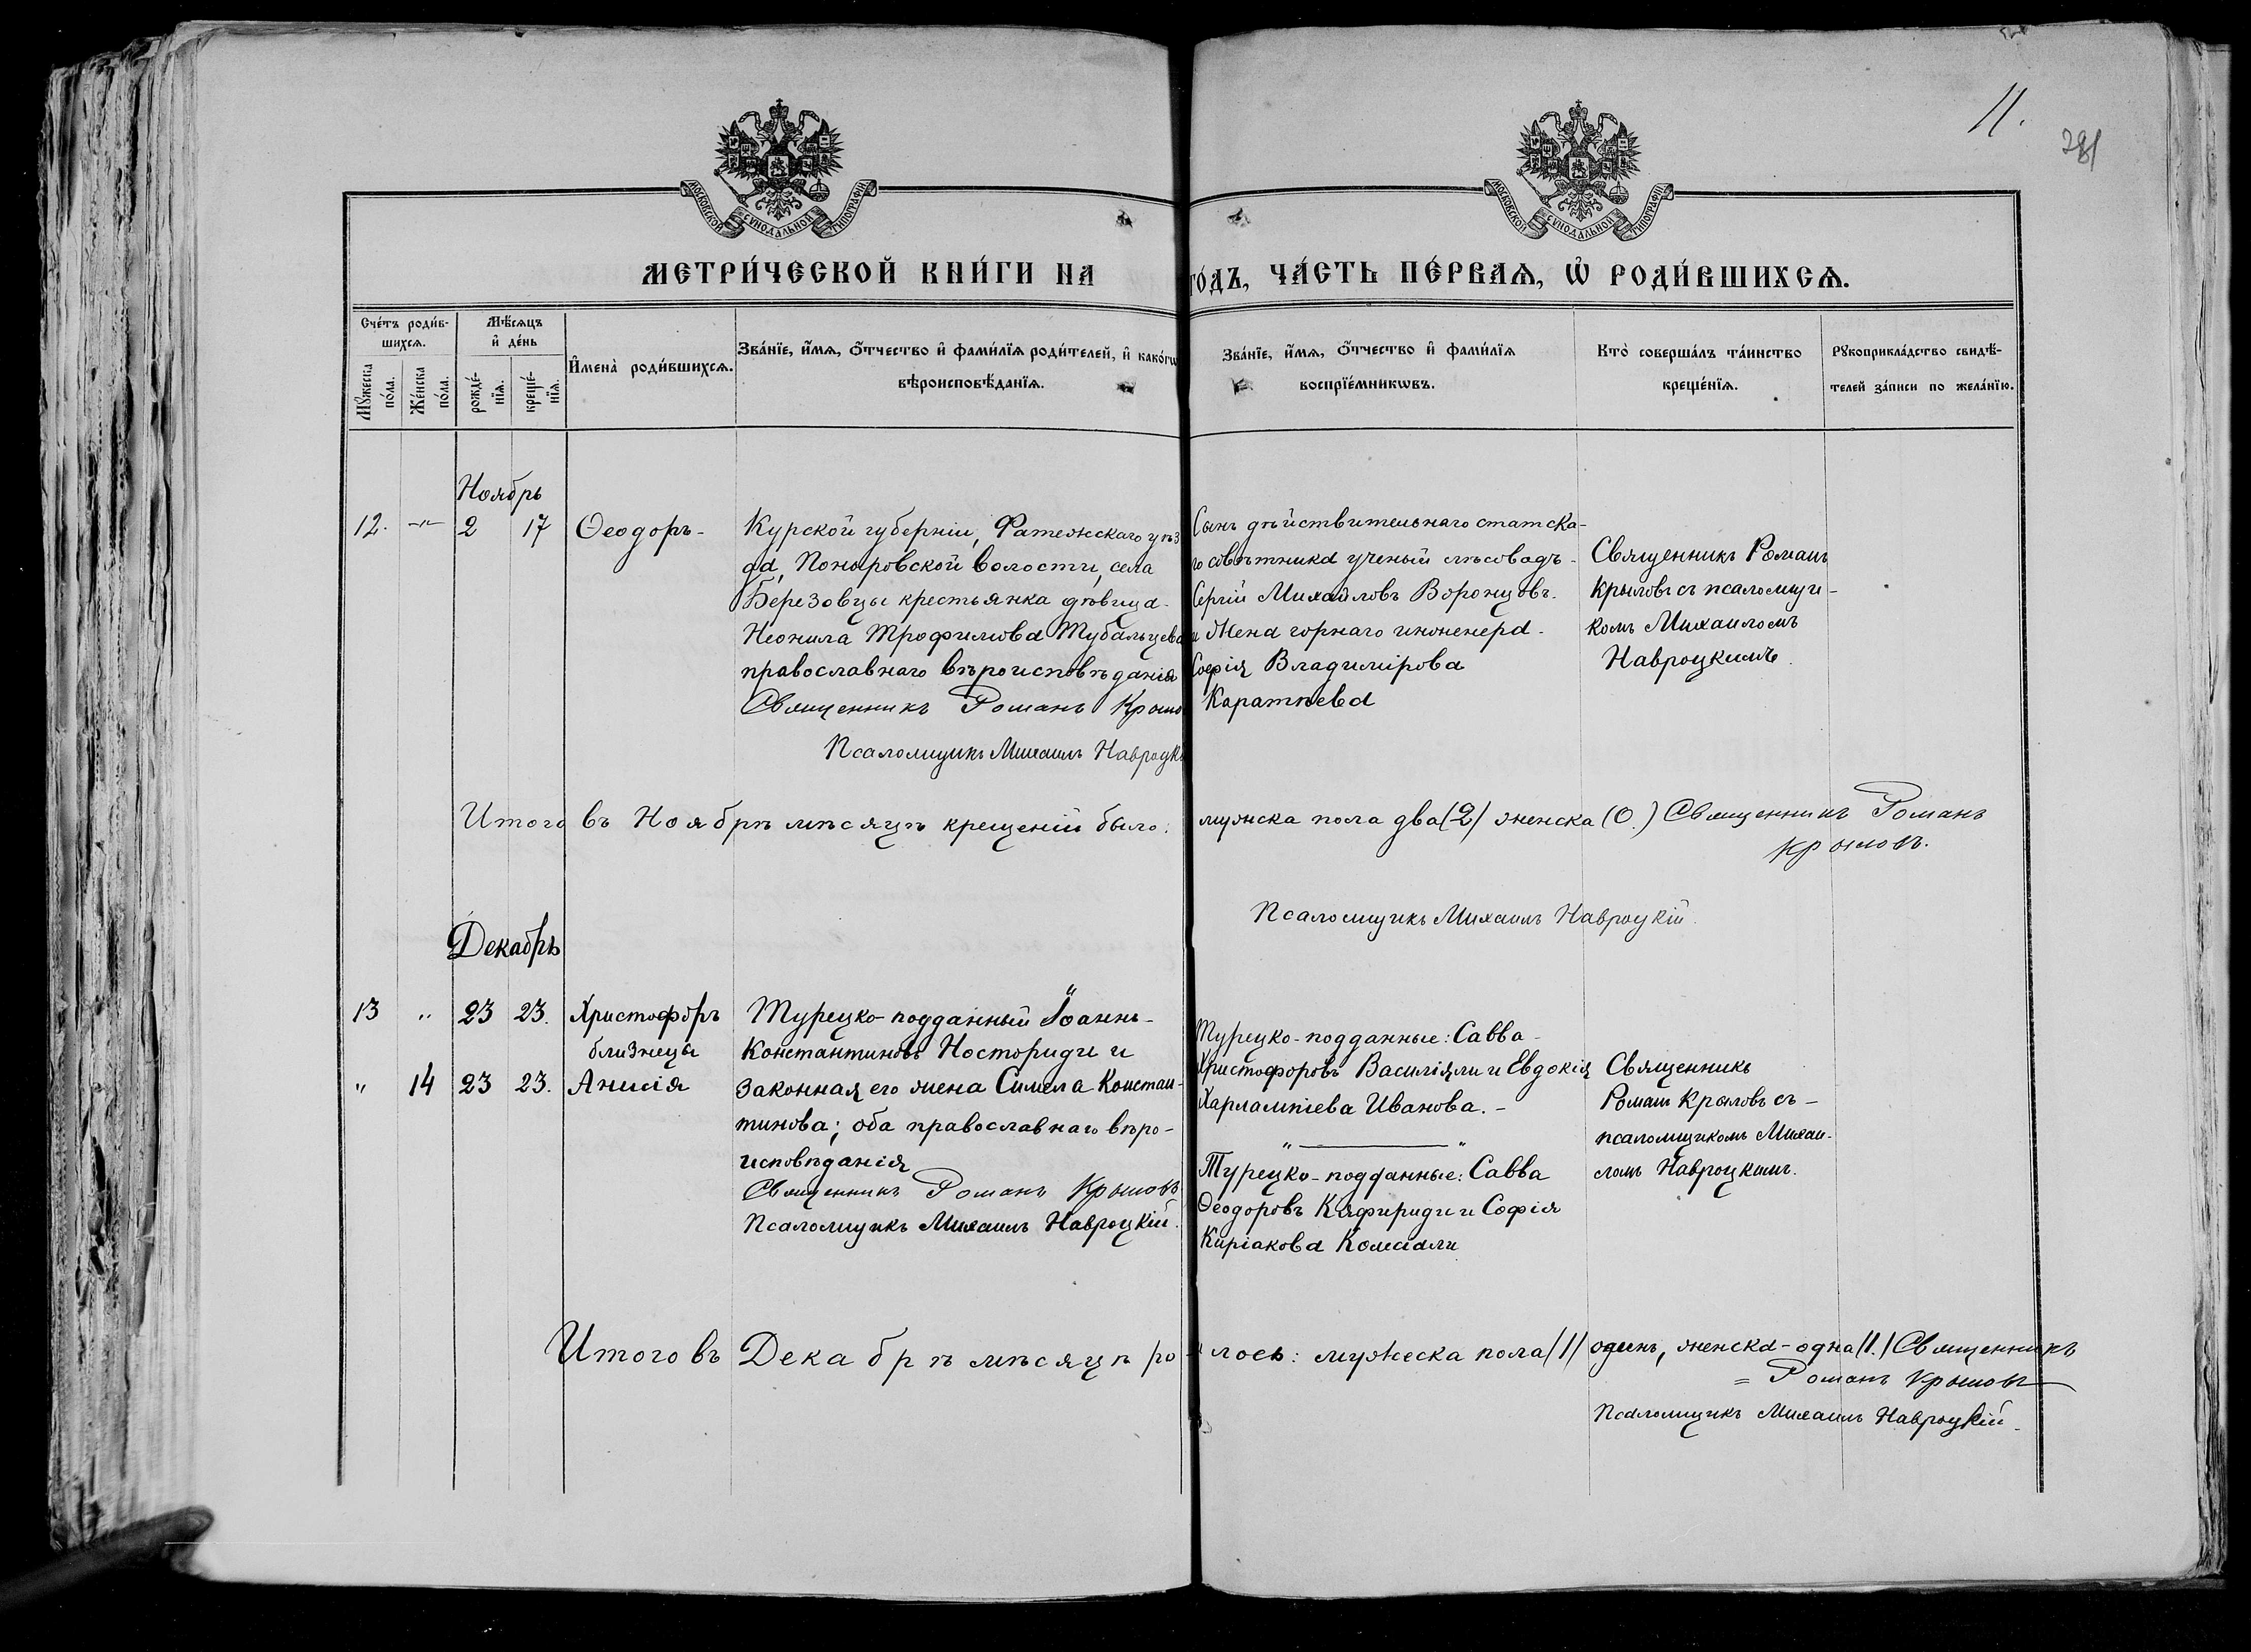 11.
281
МОСКОВСКОЙ СѴНОДАЛЬНОЙ ТИПОГРАФІИ
МОСКОВСКОЙ СѴНОДАЛЬНОЙ ТИПОГРАФІИ
МЕТРИ́ЧЕСКОЙ КНИ́ГИ НА
ГО́ДЪ, ЧА́СТЬ ПЕ́РВАѦ, Ѡ҆ РОДИ́ВШИХСѦ.
Сче́тъ роди́в-
шихсѧ.
Мꙋ́жеска по́ла.
Же́нска по́ла.
Мѣ́сѧцъ
и҆ де́нь
рожде́-
нїѧ.
креще́-
нїѧ.
И҆мена̀ роди́вшихсѧ.
Зва́нїе, и҆́мѧ, ѻ҆́тчество и҆ фами́лїѧ роди́телей, и҆ како́гѡ
вѣроисповѣ́данїѧ.
Зва́нїе, и҆́мѧ, ѻ҆́тчество и҆ фами́лїѧ
воспрїе́мникѡвъ.
Кто̀ соверша́лъ та́инство
креще́нїѧ.
Рꙋкоприкла́дство свидѣ́-
телей за́писи по жела́нїю.
Ноябрь
12. -"- 2 17 Ѳеодоръ-
Курской губерніи, Фатежскаго уѣз
да, Поныровской волости, села
Березовцы крестьянка дѣвица-
Неонила Трофимова Тубальцева
православнаго вѣроисповѣданія
Священникъ Романъ Крыло
Псаломщикъ Михаилъ Навроцк
Сынъ дѣйствительнаго статска-
го совѣтника ученый лѣсоводъ-
Сергій Михайловъ Воронцовъ-
и Жена горнаго инженера-
Софія Владимірова
Каратѣева
Священникъ Романъ
Крыловъ съ псаломщи-
комъ Михаиломъ
Навроцкимъ.
Итого въ Ноябрѣ мѣсяцѣ крещеній было: мужска пола два (2) женска (0.) Священникъ Романъ
Крыловъ.
Псаломщикъ Михаилъ Навроцкій.
Декабрь
13 " 23 23. Христофоръ
близнецы
" 14 23 23. Анисія
Турецко-подданный Іоаннъ-
Константиновъ Носториди и
законная его жена Симела Констан-
тинова; оба православнаго вѣро-
исповѣданія
Священникъ Романъ Крыловъ
Псаломщикъ Михаилъ Навроцкій.
Турецко-подданные: Савва-
Христофоровъ Василіяли и Евдокія
Харлампіева Иванова.-
" ——— "
Турецко-подданные: Савва
Ѳеодоровъ Кяфириди и Софія
Киріакова
Священникъ
Романъ Крыловъ съ-
псаломщикомъ Михаи-
ломъ Навроцкимъ.
Итого въ Декабрѣ мѣсяцѣ ро лось: мужеска пола (1) одинъ, женска-одна (1.) Священникъ
= Романъ Крыловъ
Псаломщикъ Михаилъ Навроцкій.